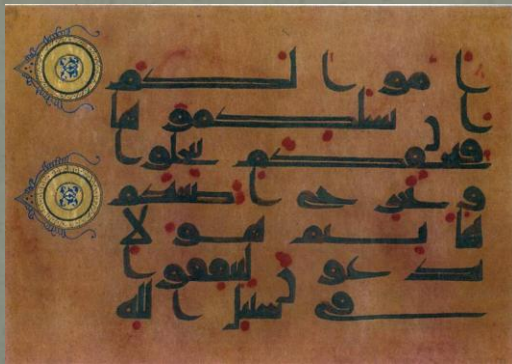 اموالكم
ان يسلكموها
فيحفكم تبخلوا
ويخرج اضغنكم
هانتم هولا
تدعون لتنفقوا
في سبيل الله